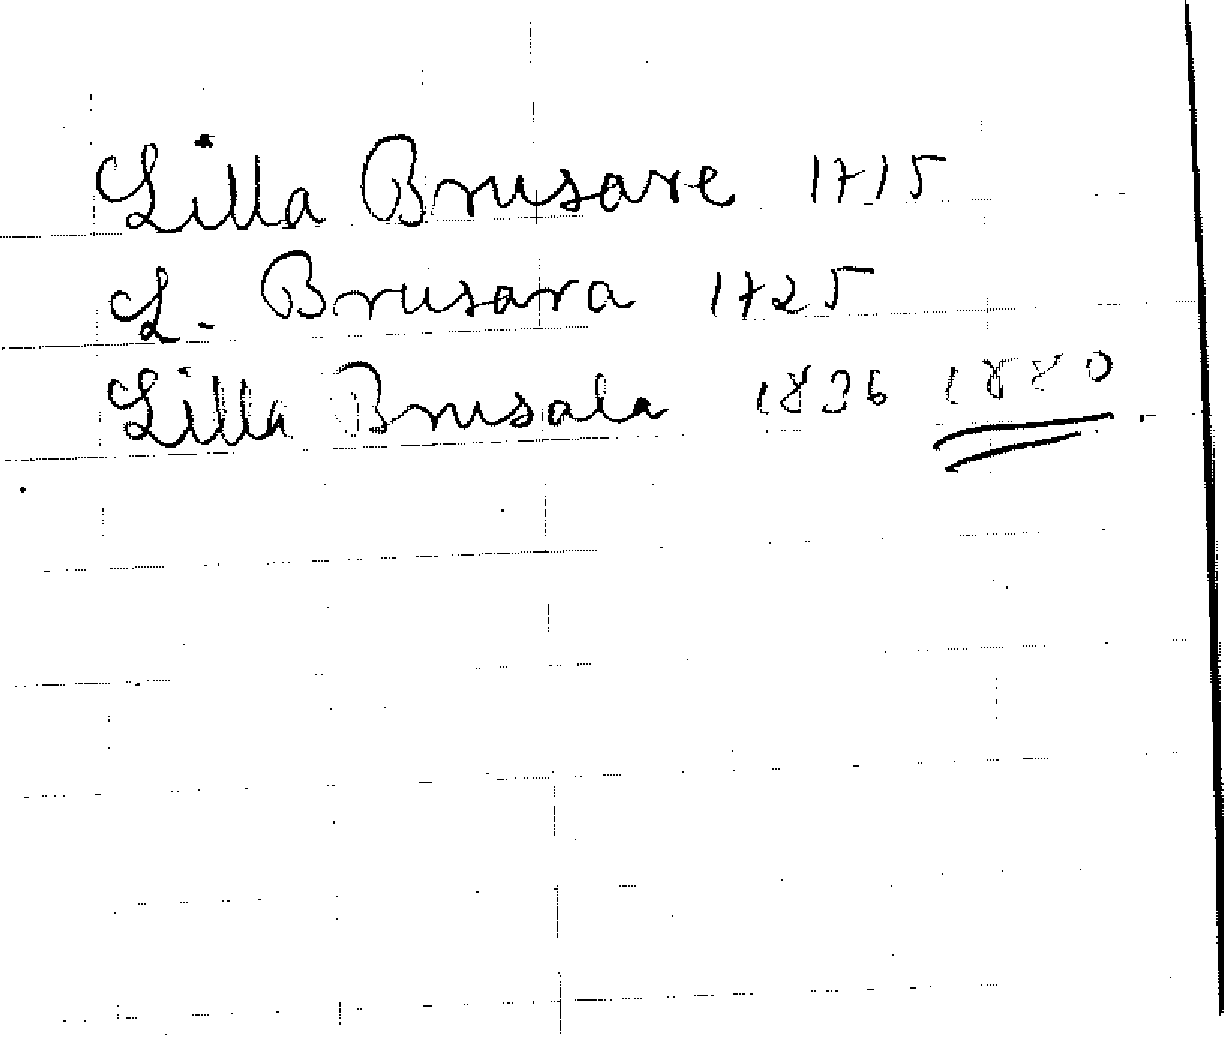 Lilla Brusare 1715
L. Brusara 1725
Lilla Brusala 1836 1880